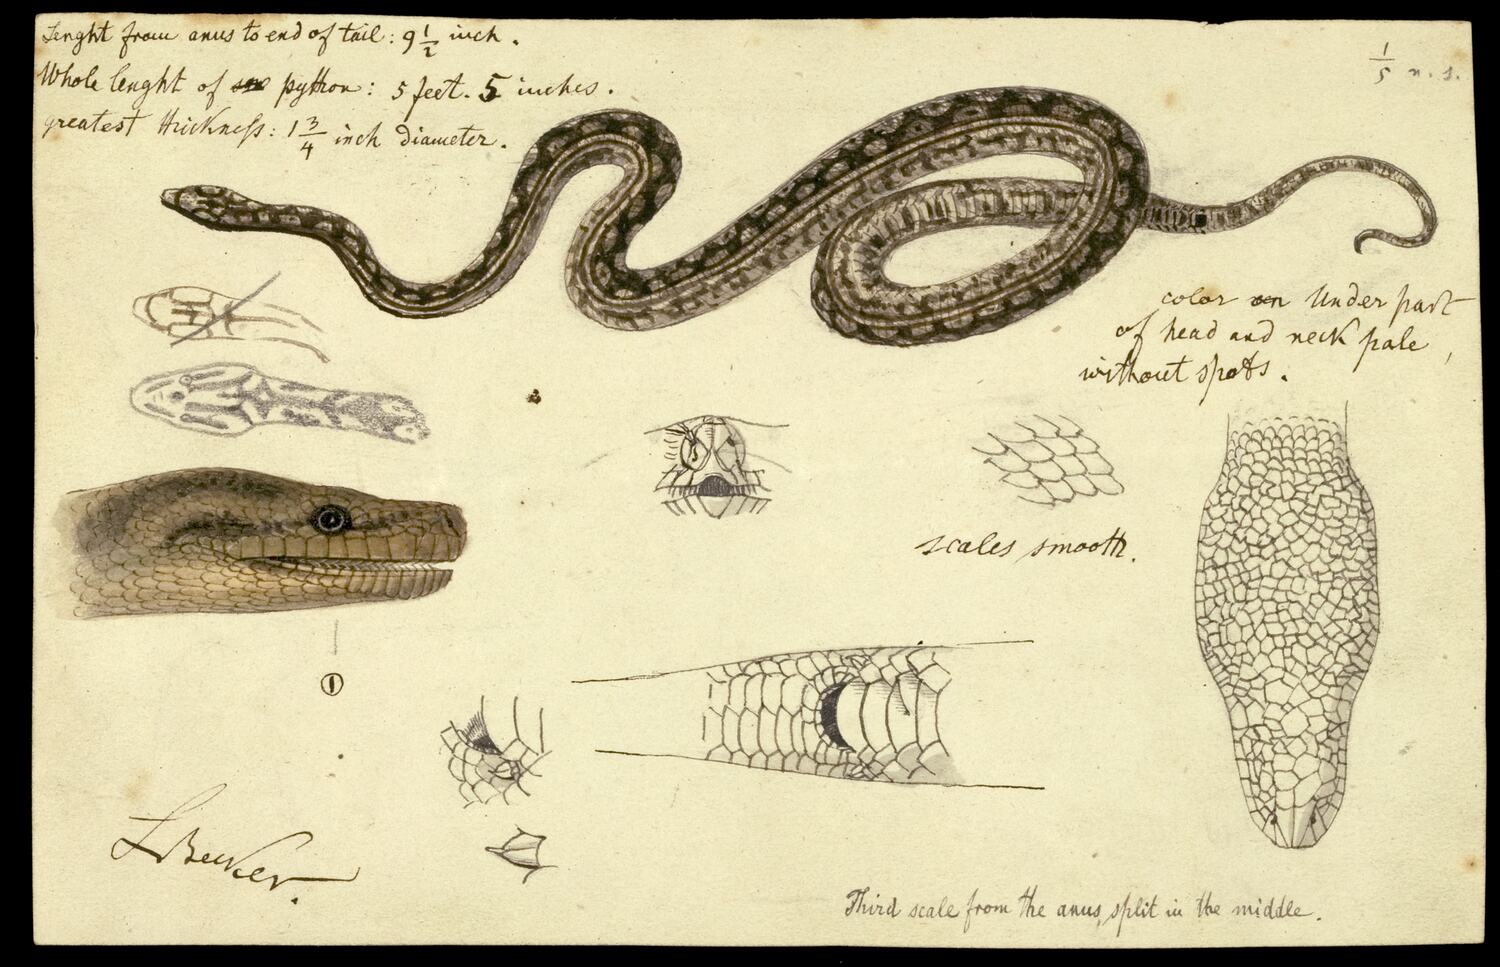 Lenght from anus to end of tail: 9 1/2 inch.
Whole lenght of python: 5 feet. 5 inches.
greatest thickness: 1 3/4 inch diameter.
1/5 n. s.
color Under part
of head and neck pale,
without spots.
scales smooth.
1
L Becker.
Third scale from the anus, split in the middle.